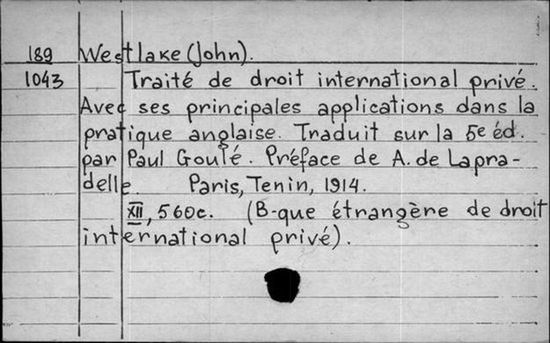 189 Westlake (John).
1043 Traité de droit international privé.
Avec ses principales applications dans la
pratique anglaise. Traduit sur la 5e éd.
par Paul Goulé. Préface de A. de Lapra-
delle. Paris, Tenin, 1914.
XII, 560c. (B-que étrangère de droit
international privé).